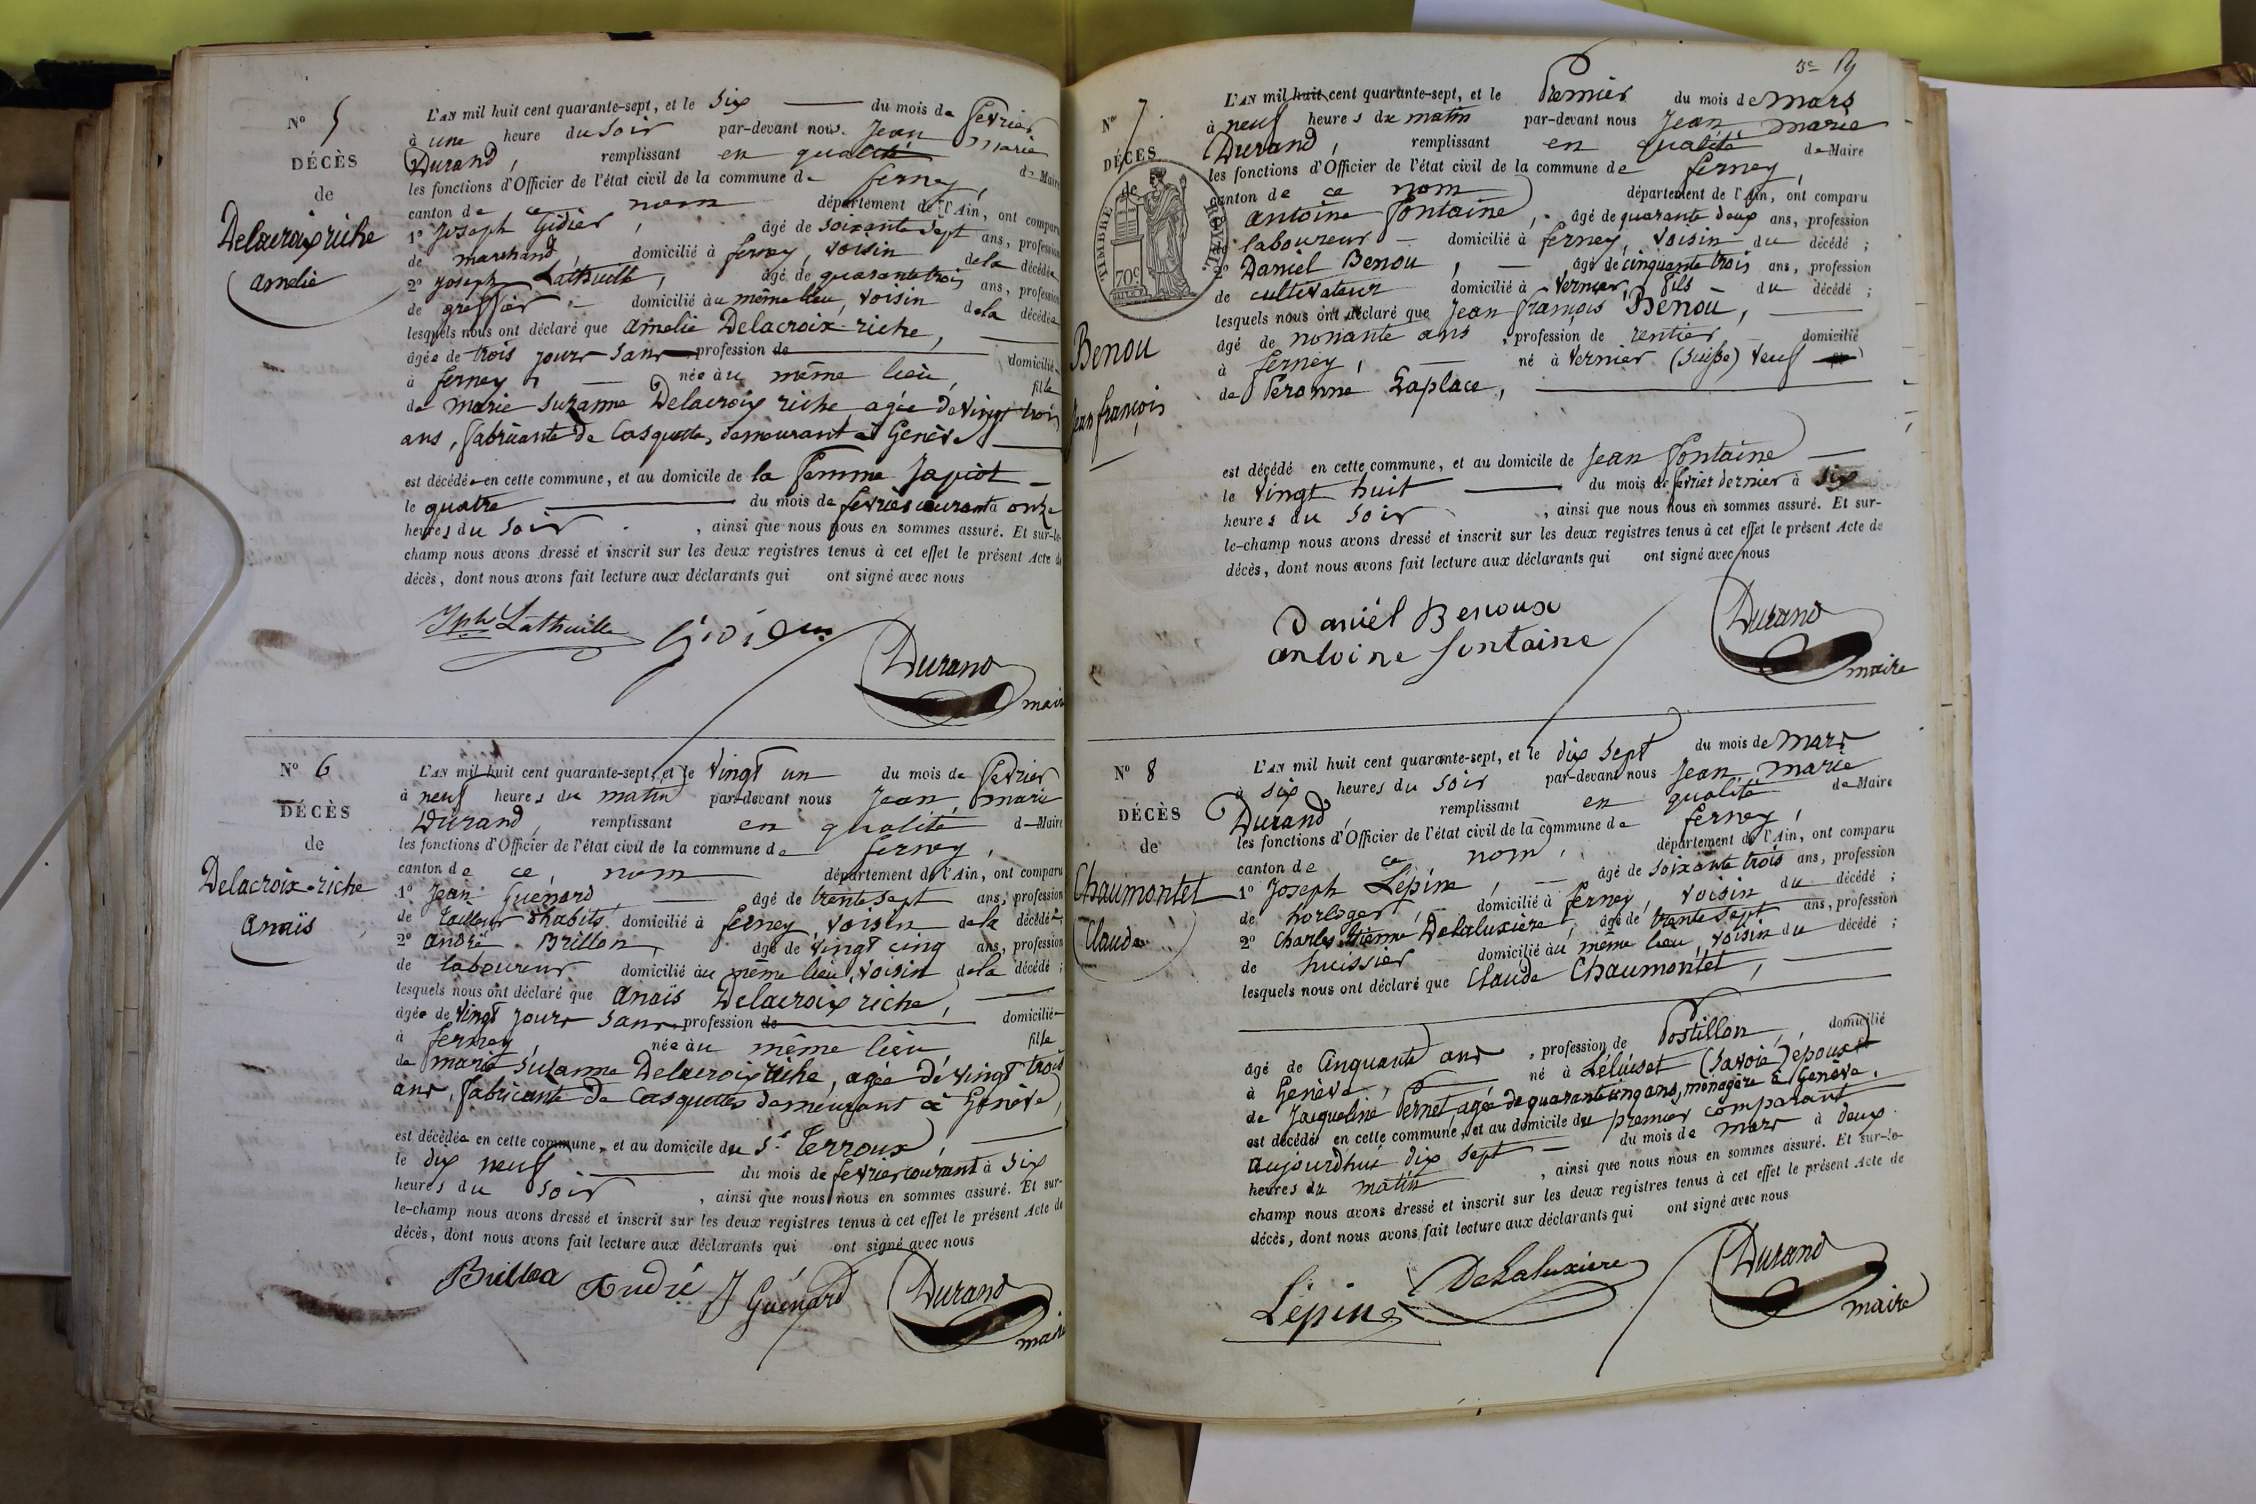 N° 5
DÉCÈS
de
Delacroix riche
Amelie
L'AN mil huit cent quarante-sept, et le Six du mois de fevrier
à une heure du Soir par-devant nous Jean marie
Durand, remplissant en qualité de Maire
les fonctions d'Officier de l'état civil de la commune de ferney,
canton de ce nom département de l'Ain, ont comparu
1° Joseph Gidier, âgé de soixante sept ans, profession
de marchand, domicilié à ferney, voisin de la décédée
2° Joseph Lathuille, âgé de quarante trois ans, profession
de greffier domicilié au même lieu, voisin de la décédée
lesquels nous ont déclaré que Amelie Delacroix riche,
âgée de trois jours sans profession de domiciliée
à ferney, née au même lieu, fille
de marie Suzanne Delacroix riche agée de vingt trois
ans, fabricante de Casquettes, demeurant à Genève
est décédée en cette commune, et au domicile de la femme Japiot
le quatre du mois de fevrier courant à onze
heures du Soir, ainsi que nous nous en sommes assuré. Et sur-le-
champ nous avons dressé et inscrit sur les deux registres tenus à cet effet le présent Acte de
décès, dont nous avons fait lecture aux déclarants qui ont signé avec nous
Jph Lathuille
Durand
maire
N° 6
DÉCÈS
de
Delacroix-riche
Anaïs
L'AN mil huit cent quarante-sept, et le vingt un du mois de fevrier
à neuf heures du matin par-devant nous Jean, marie
Durand, remplissant en qualité de Maire
les fonctions d'Officier de l'état civil de la commune de ferney,
canton de ce nom département de l'Ain, ont comparu
1° Jean Guénard âgé de trente sept ans, profession
de Tailleur d'habits, domicilié à ferney, voisin de la décédée
2° andré Brillon, âgé de vingt cinq ans, profession
de laboureur domicilié au même lieu, voisin de la décédé ;
lesquels nous ont déclaré que Anaïs Delacroix riche,
âgée de vingt jours sans profession de domiciliée
à ferney, née au même lieu fille
de marie Suzanne Delacroix riche, agée de vingt trois
ans, fabricante de Casquettes demeurant à Genève,
est décédée en cette commune, et au domicile du Sr Terroux,
le dix neuf du mois de fevrier courant à six
heures du soir, ainsi que nous nous en sommes assuré. Et sur-
le-champ nous avons dressé et inscrit sur les deux registres tenus à cet effet le présent Acte de
décès, dont nous avons fait lecture aux déclarants qui ont signé avec nous
André J Guénard Durand
maire
N° 7
DÉCÈS
de
TIMBRE ROYAL
70c
Benou
Jean françois
L'AN mil huit cent quarante-sept, et le Premier du mois de mars
à neuf heures du matin par-devant nous Jean marie
Durand, remplissant en qualité de Maire
les fonctions d'Officier de l'état civil de la commune de ferney,
canton de ce nom département de l'Ain, ont comparu
antoine fontaine, âgé de quarante deux ans, profession
laboureur domicilié à ferney, voisin du décédé ;
2° Daniel Benou, âgé de cinquante trois ans, profession
de cultivateur domicilié à Vernier, fils du décédé ;
lesquels nous ont déclaré que Jean françois Benou,
âgé de nonante ans, profession de rentier domicilié
à ferney, né à Vernier (Suisse) veuf
de Peronne Laplace,
est décédé en cette commune, et au domicile de Jean fontaine
le vingt huit du mois de fevrier dernier à six
heures du soir, ainsi que nous nous en sommes assuré. Et sur-
le-champ nous avons dressé et inscrit sur les deux registres tenus à cet effet le présent Acte de
décès, dont nous avons fait lecture aux déclarants qui ont signé avec nous
Daniel Benoux
antoine fontaine
Durand
maire
N° 8
DÉCÈS
de
Chaumontet
Claude
L'AN mil huit cent quarante-sept, et le dix sept du mois de mars
à six heures du soir par-devant nous Jean marie
Durand, remplissant en qualité de Maire
les fonctions d'Officier de l'état civil de la commune de ferney,
canton de ce nom, département de l'Ain, ont comparu
1° Joseph Lépine, âgé de soixante trois ans, profession
de horloger, domicilié à ferney, voisin du décédé ;
2° Charles Etienne Delaluxière, âgé de trente sept ans, profession
de huissier domicilié au même lieu, voisin du décédé ;
lesquels nous ont déclaré que Claude Chaumontet,
âgé de Cinquante ans, profession de Postillon, domicilié
à Genève, né à Léluiset (Savoie) époux
de Jacqueline Pernet, agée de quarante cinq ans, ménagère à Genève,
est décédé en cette commune, et au domicile du premier comparant
aujourdhui dix sept du mois de mars à deux
heures du matin, ainsi que nous nous en sommes assuré. Et sur-le-
champ nous avons dressé et inscrit sur les deux registres tenus à cet effet le présent Acte de
décès, dont nous avons fait lecture aux déclarants qui ont signé avec nous
Lépine DeLaluxiere Durand
maire